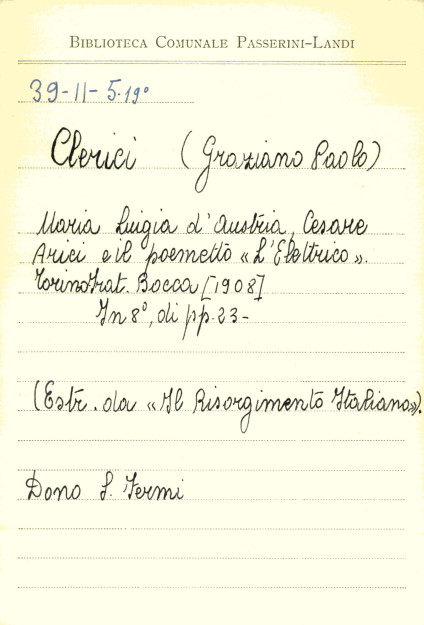 BIBLIOTECA COMUNALE PASSERINI-LANDI
39-11-5.19°
Clerici (Graziano Paolo)
Maria Luigia d'Austria, Cesare
Arici e il poemetto «L'Elettrico».
Torino Frat. Bocca [1908]
In 8°, di pp. 23-
(Estr. da «Il Risorgimento Italiano»).
Dono S. Fermi